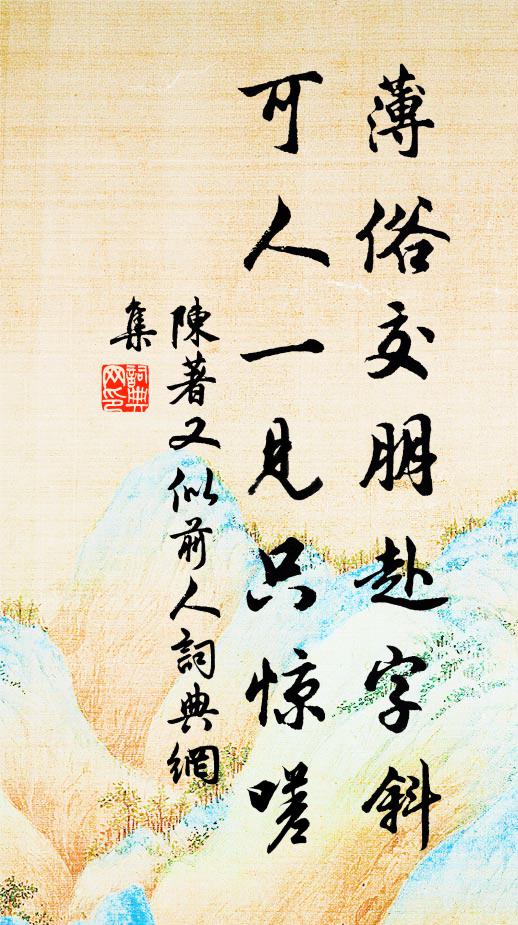 薄俗交朋赴字斜
可人一見只惊嗟
陳著又似前人詞典網
集
詞典網印